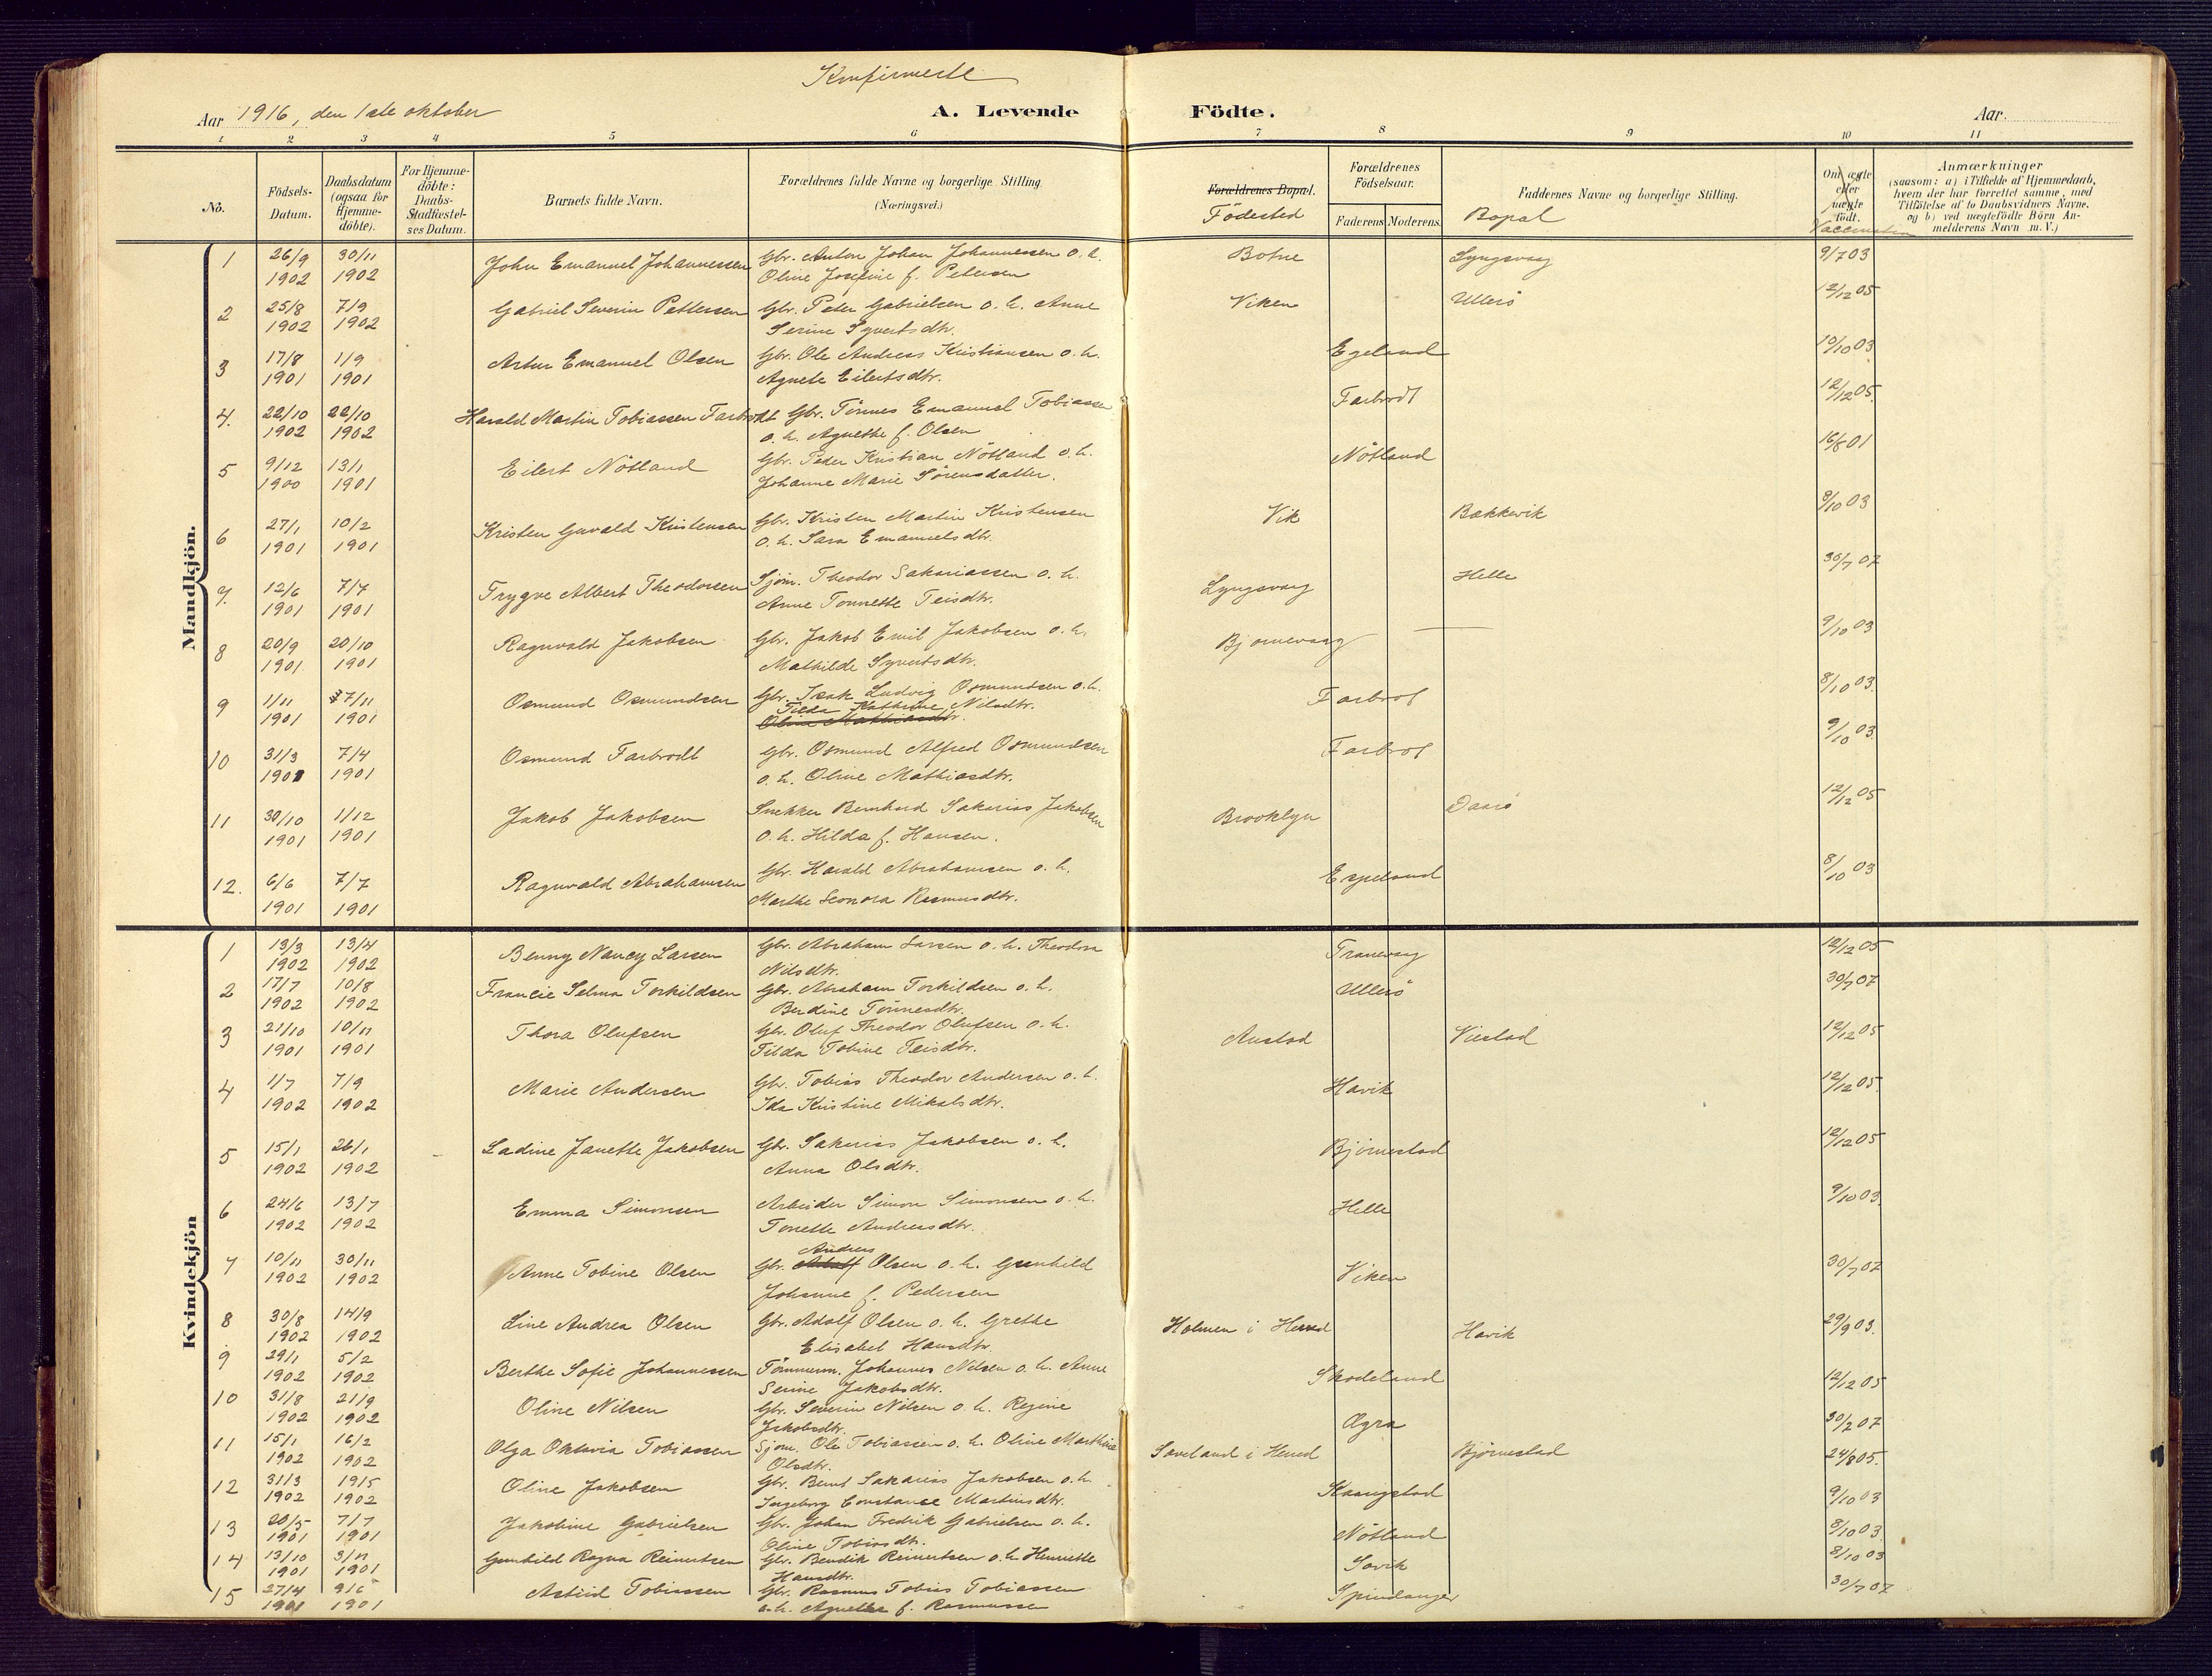 Konfirmerte
Aar 1916, den 1ste oktober
A. Levende Födte.
Aar.
1 2 3 4 5 6 7 8 9 10 11
No.
Födsels-Datum.
Daabsdatum (ogsaa for Hjemme-döbte).
For Hjemme-döbte: Daabs-Stadfæstel-ses Datum.
Barnets fulde Navn.
Forældrenes fulde Navne og borgerlige Stilling (Næringsvei.)
Forældrenes Bopæl.
Födested
Forældrenes Födselsaar.
Faderens Moderens.
Faddernes Navne og borgerlige Stilling.
Bopæl
Om ægte eller uægte födt.
Vaccination
Anmærkninger
(saasom: a) i Tilfælde af Hjemmedaab,
hvem der har forrettet samme, med
Tilföielse af to Daabsvidners Navne,
og b) ved uægtefödte Börn An-
melderens Navn m. V.)
Mandkjön.
1 26/9 30/11 John Emanuel Johannessen Gbr. Anton Johan Johannessen o. h. Botne Lyngsvaag 9/7 03
1902 1902 Oline Josefine f. Petersen
2 25/8 7/9 Gabriel Severin Pettersen Gbr. Peter Gabrielsen o. h. Anne Viken Ullerö 12/12 05
1902 1902 Serine Syvertsdtr.
3 17/8 1/9 Artur Emanuel Olsen Gbr. Ole Andreas Kristiansen o. h. Egeland 10/10 03
1901 1901 Agnete Eilertsdtr.
4. 22/10 22/10 Harald Martin Tobiassen Farbrodt Gbr. Tönnes Emanuel Tobiassen Farbrodt 12/12 05.
1902 1902 o. h. Agnethe f. Olsen
5 9/12 13/1 Eilert Nötland Gbr. Peder Kristian Nötland o. h. Nötland 16/8 01
1900 1901 Johanne Marie Sörensdatter.
6 27/1 10/2 Kristen Guvald Kristensen Gbr. Kristen Martin Kristensen Vik Bakkevik 8/10 03
1901 1901 o. h. Sara Emanuelsdtr.
7. 12/6 7/7 Trygve Albert Theodorsen Sjöm. Theodor Sakariassen o. h. Lyngsvaag Helle 30/7 07
1901 1901 Anne Tonnette Teisdtr.
8 20/9 20/10 Ragnvald Jakobsen Gbr. Jakob Emil Jakobsen o. h. Bjornevaag — 9/10 03
1901 1901 Mathilde Syvertsdtr.
9 1/11 17/11 Osmund Osmundsen Gbr. Isak Ludvig Osmundsen o. h. Farbrot 8/10 03.
1901 1901 Tilda Kathrine Nilsdtr.
Oline Mathiasdtr.
10 31/3 7/4 Osmund Farbrodt Gbr. Osmund Alfred Osmundsen Farbrot 9/10 03.
1901 1901 o. h. Oline Mathiasdtr.
11 30/10 1/12 Jakob Jakobsen Snekker Bernhard Sakarias Jakobsen Brooklyn Daarö 12/12 05
1901 1901 o. h. Hilda f. Hansen.
12. 6/6 7/7 Ragnvald Abrahamsen Gbr. Harald Abrahamsen o. h. Espeland 8/10 03
1901 1901 Marthe Leonora Rasmusdtr.
Kvindekjön
1 13/3 13/4 Benny Nancy Larsen Gbr. Abraham Larsen o. h. Theodora Tranevaag 12/12 05
1902 1902 Nilsdtr.
2 17/7 10/8 Francie Selma Torkildsen Gbr. Abraham Torkildsen o. h. Ullerö 30/7 07
1902 1902 Berdine Tönnesdtr.
3 21/10 10/11 Thora Olufsen Gbr. Oluf Theodor Olufsen o. h. Austad Viestad 12/12 05
1901 1901 Tilda Tobine Teisdtr.
4 1/7 7/9 Marie Andersen Gbr. Tobias Theodor Andersen o. h. Havik 12/12 05.
1902 1902 Ida Kristine Mikalsdtr.
5 15/1 26/1 Ladine Janette Jakobsen Gbr. Sakarias Jakobsen o. h. Bjørnestad 12/12 05
1902 1902 Anna Olsdtr.
6 24/6 13/7 Emma Simonsen Arbeider Simon Simonsen o. h. Helle 9/10 03
1902 1902 Tonette Andreasdtr.
7 10/11 30/11 Anne Tobine Olsen Gbr. Adolf Andreas Olsen o. h. Gunhild Viken 30/7 07
1902 1902 Johanne f. Pedersen
8 30/8 14/9 Line Andrea Olsen Gbr. Adolf Olsen o. h. Grethe Holmen i Herred Havik 29/9 03.
1902 1902 Elisabet Hansdtr.
9 29/1 5/2 Berthe Sofie Johannessen Tömmerm. Johannes Nilsen o. h. Anne Skodeland 12/12 05
1902 1902 Serine Jakobsdtr.
10 31/8 21/9 Oline Nilsen Gbr. Severin Nilsen o. h. Regine Ogra 30/7 07
1902 1902 Jakobsdtr.
11 15/1 16/2 Olga Oktavia Tobiassen Sjöm. Ole Tobiassen o. h. Oline Marthine Saveland i Herred Bjørnestad 24/8 05.
1902 1902 Olsdtr.
12 31/3 19/5 Oline Jakobsen Gbr. Bernt Sakarias Jakobsen o. h. Kaangstad 9/10 03
1902 1902 Ingeborg Constance Martinsdtr.
13 20/5 7/7 Jakobine Gabrielsen Gbr. Johan Fredrik Gabrielsen o. h. Nötland 8/10 03
1901 1901 Oline Tobiasdtr.
14 13/10 3/11 Gunhild Ragna Reinertsen Gbr. Bendik Reinertsen o. h. Henriette Savik 8/10 03
1901 1901 Hansdtr.
15 27/4 9/6 Astrid Tobiassen Gbr. Rasmus Tobias Tobiassen Spindanger 30/7 07
1901 1901 o. h. Agnethe f. Rasmussen